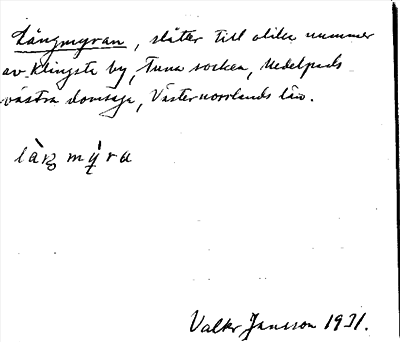 Långmyran, slåtter till olika nummer
av Klingsta by, Tuna socken, Medelpads
västra domsaga, Västernorrlands län.
Valter Jansson 1931.